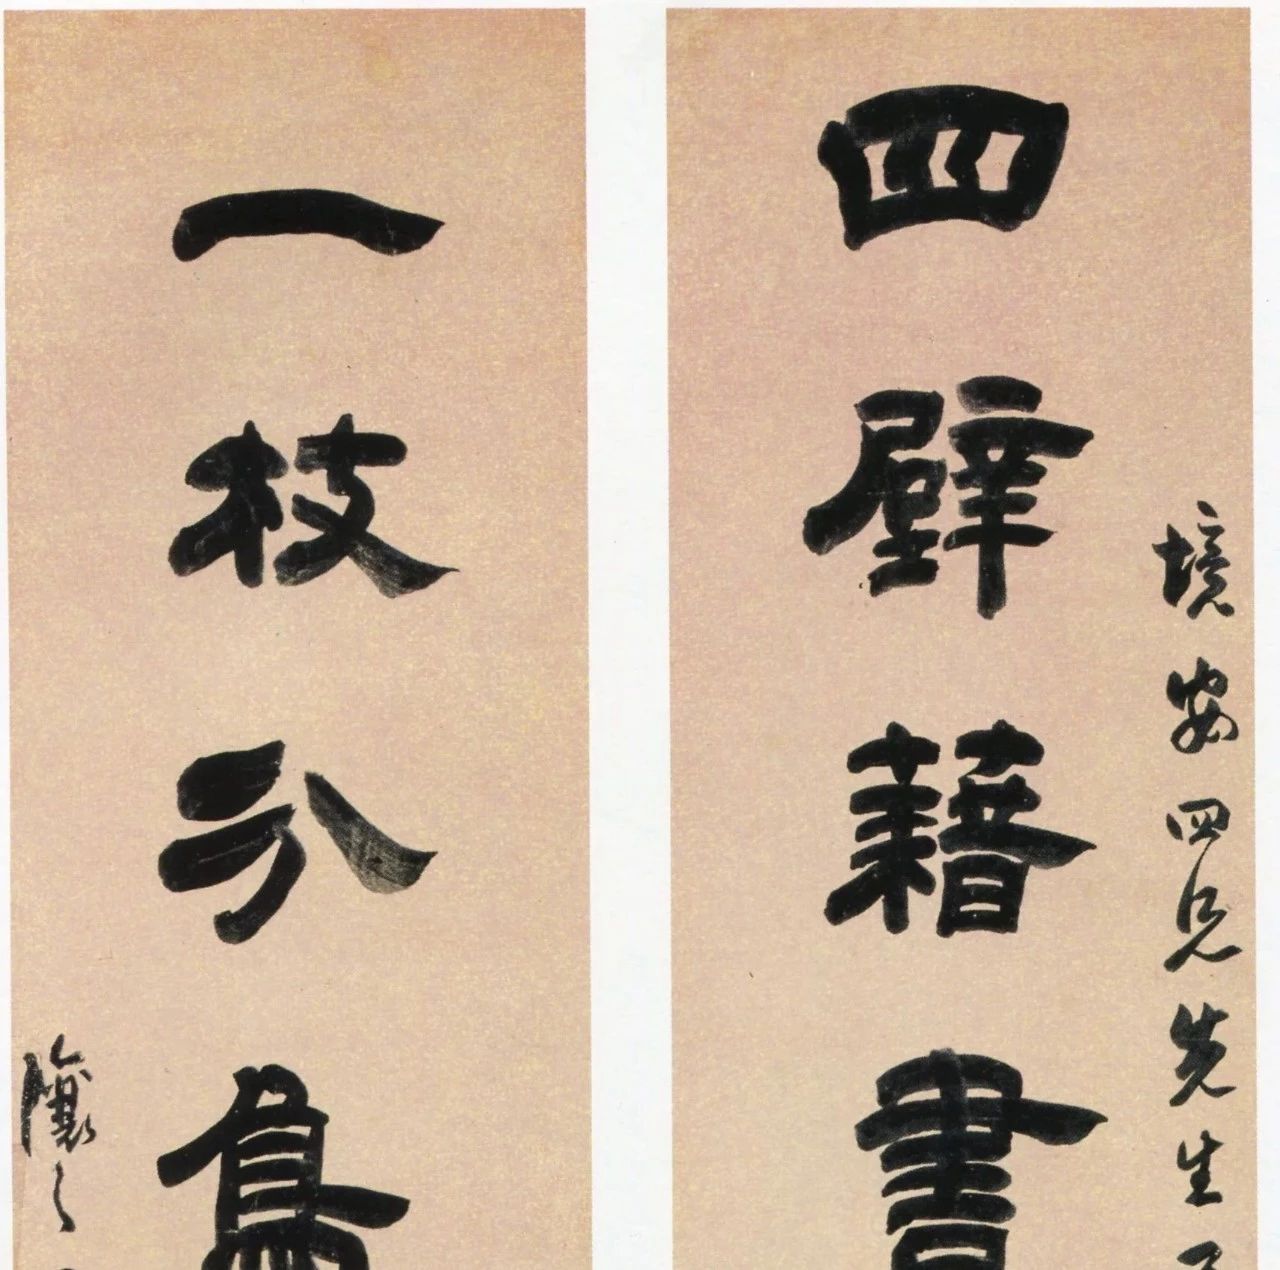 境安四兄先生
四壁藉書
一枝分鳥
讓之